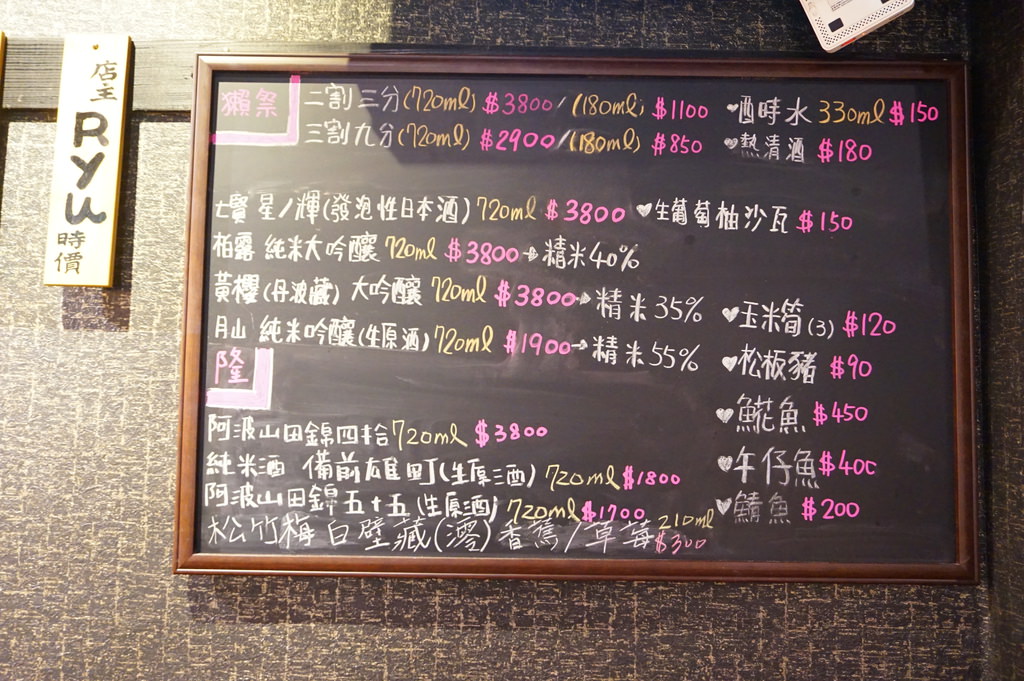 店主
Ryu
時價
獺祭
二割三分(720ml) $3800/(180ml) $1100
三割九分(720ml) $2900/(180ml) $850
七賢 星ノ輝(發泡性日本酒) 720ml $3800
柏露 純米大吟釀 720ml $3800→精米40%
黃櫻(丹波藏) 大吟釀 720ml $3800→精米35%
月山 純米吟釀(生原酒) 720ml $1900→精米55%
隆
阿波山田錦四拾 720ml $3800
純米酒 備前雄町(生原酒) 720ml $1800
阿波山田錦五十五(生原酒) 720ml $1700
松竹梅白壁藏(澪)香蕉/草莓 210ml $300
♥酉時水 330ml $150
♥熱清酒 $180
♥生葡萄柚沙瓦 $150
♥玉米筍(3) $120
♥松板豬 $90
♥魭魚 $450
♥午仔魚 $400
♥鯖魚 $200